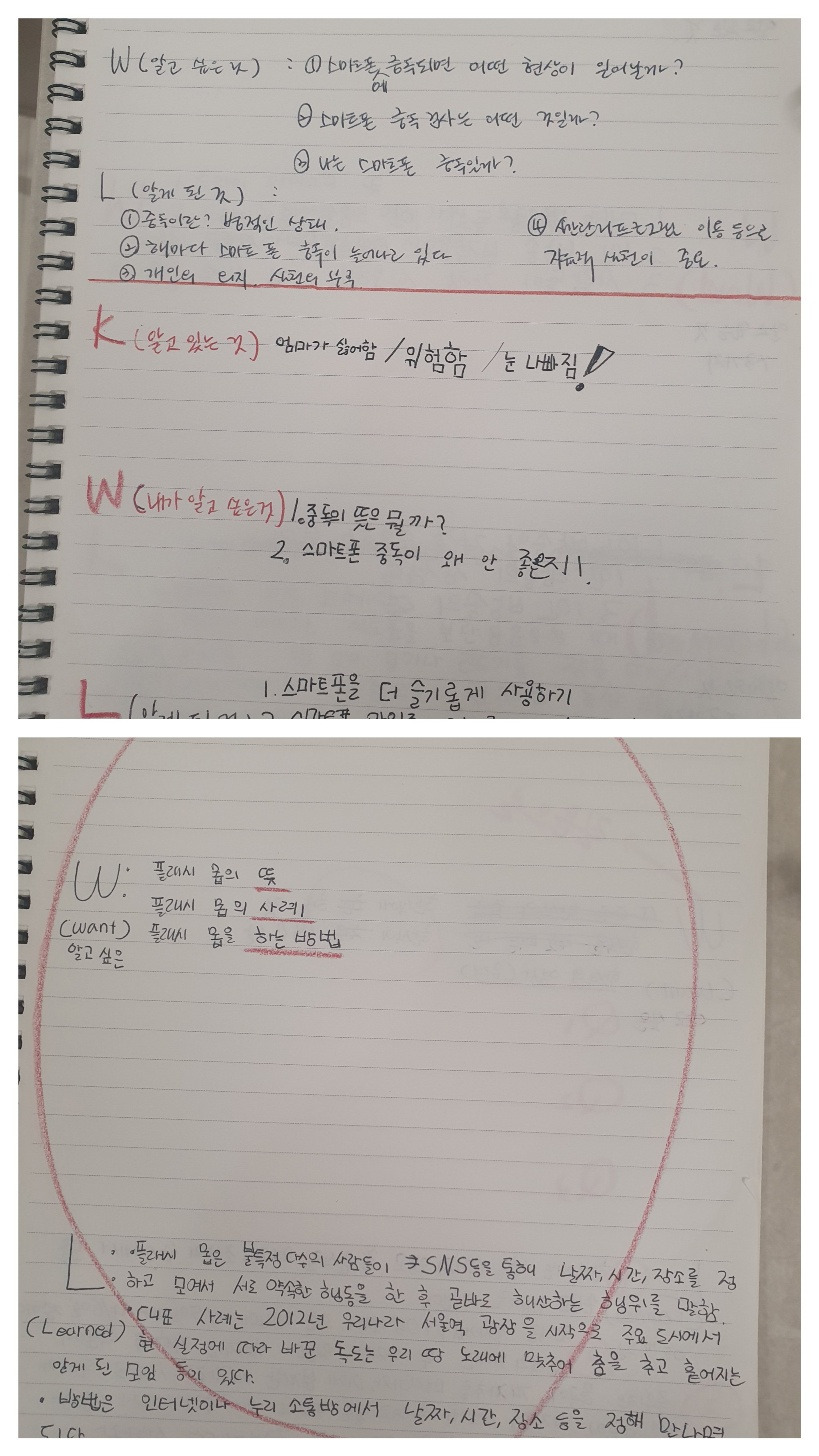 W (알고 싶은 것) : ① 스마트폰에 중독되면 어떤 현상이 일어날까?
② 스마트폰 중독 검사는 어떤 것일까?
③ 나는 스마트폰 중독일까?
L (알게 된 것) :
① 중독이란? 병적인 상태.
② 해마다 스마트폰 중독이 늘어나고 있다
③ 개인의 의지, 실천의 부족
④ 이용 등으로
실천이 중요.
K (알고 있는 것) 엄마가 싫어함 / 위험함 / 눈 나빠짐!
W (내가 알고 싶은것) 1. 중독의 뜻은 뭘까?
2. 스마트폰 중독이 왜 안 좋은지!!.
1. 스마트폰을 더 슬기롭게 사용하기
L (알게 된 것) 2. 스마트폰
W: 플래시 몹의 뜻
플래시 몹의 사례
(want) 플래시 몹을 하는 방법
알고 싶은
L · 플래시 몹은 불특정 다수의 사람들이 SNS등을 통해 날짜, 시간, 장소를 정
하고 모여서 서로 약속한 행동을 한 후 곧바로 해산하는 행위를 말함.
· 대표 사례는 2012년 우리나라 서울역 광장을 시작으로 주요 도시에서
(Learned) 현 실정에 따라 바꾼 독도는 우리 땅 노래에 맞추어 춤을 추고 흩어지는
알게 된 모임 등이 있다.
· 방법은 인터넷이나 누리 소통방에서 날짜, 시간, 장소 등을 정해 만나면
된다.